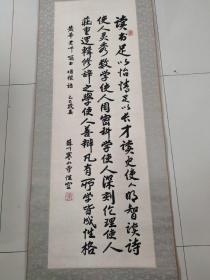 读书足以怡情足以长才读史使人明智读诗
使人灵秀数学使人周密科学使人深刻伦理使人
莊重逻辑修辞之學使人善辯凡有所学皆成性格
培根语
蘇州寒山寺性空